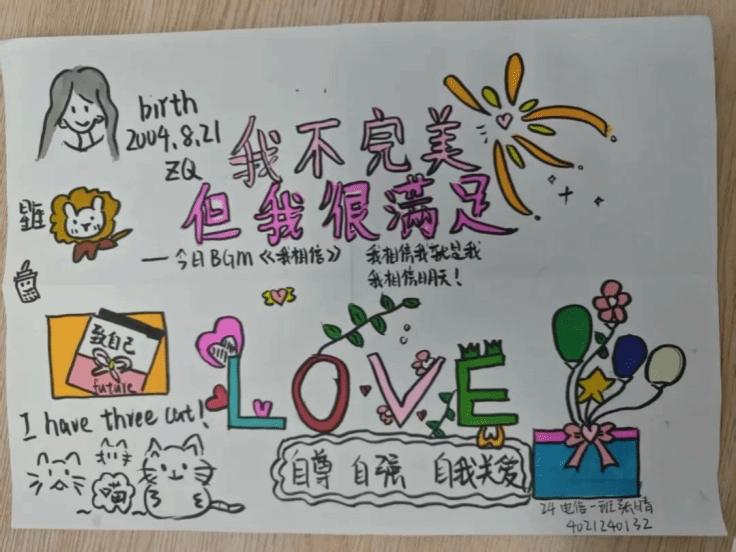 birth
2004.8.21
ZQ
我不完美
但我很满足
星座
——今日BGM《我相信》 我相信我就是我
我相信明天！
致自己
future
LOVE
I have three cat!
喵
自尊 自强 自我关爱
24电信一班张晴
4021240132